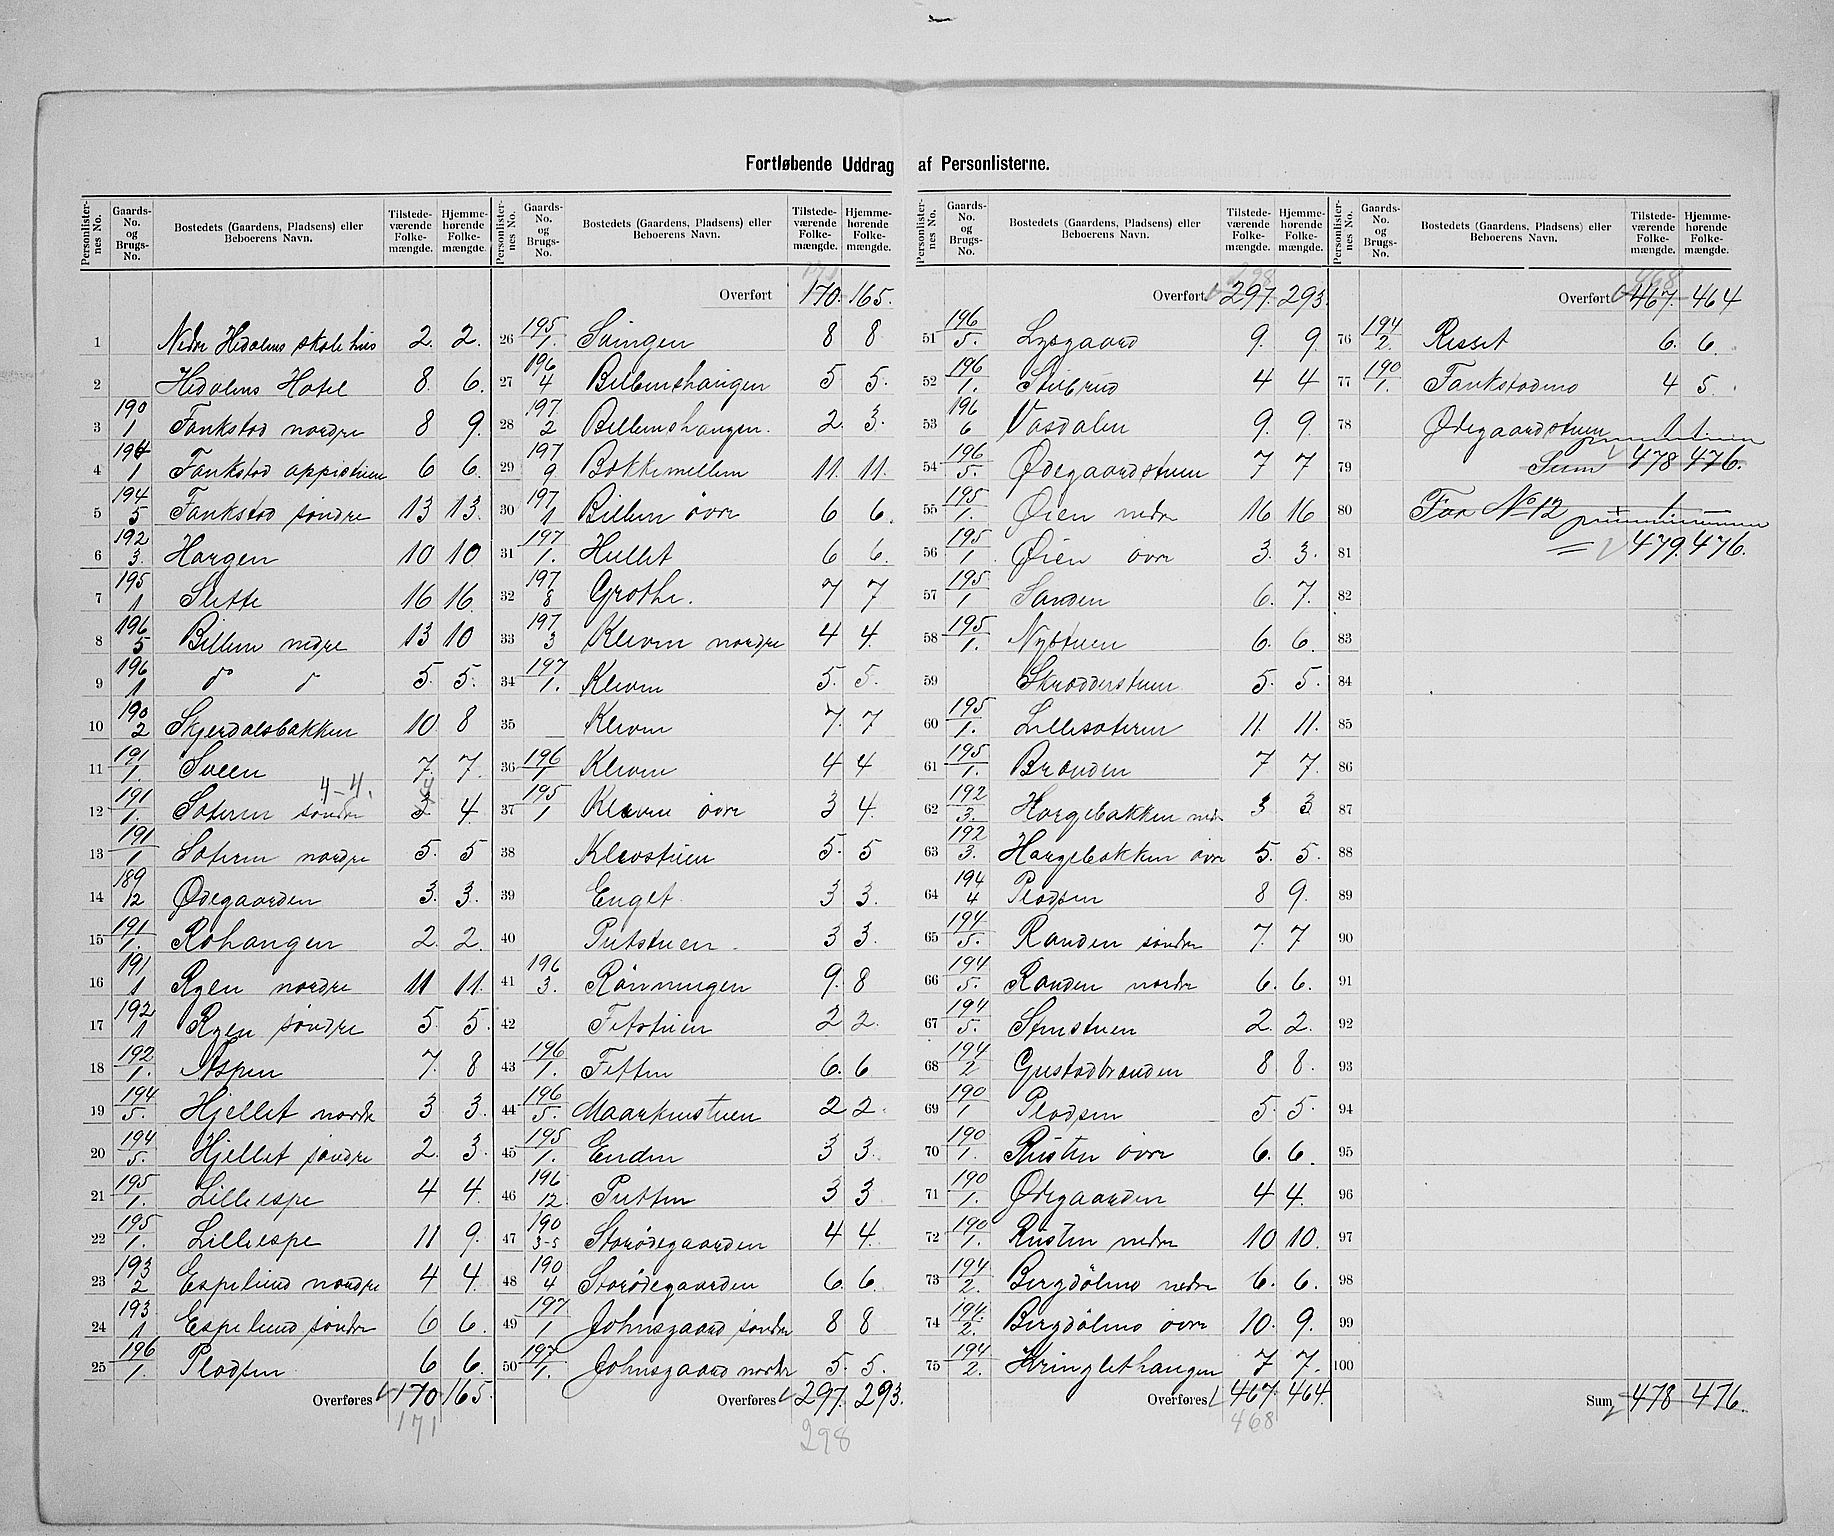 Fortløbende Uddrag af Personlisterne.
Personlisternes No. | Gaards-No. og Brugs-No. | Bostedets (Gaardens, Pladsens) eller Beboerens Navn. | Tilstedeværende Folkemængde. | Hjemmehørende Folkemængde.
1 Nedre Hedalens skolehus 2. 2.
2 Hedalens Hotel 8. 6.
3 190/1 Fankstad nordre 8 9.
4 190/1 Fankstad oppistuen 6 6.
5 194/5 Fankstad søndre 13 13.
6 192/3. Horgen 10 10
7 195/1 Slette 16 16.
8 196/5 Billum nedre 13 10
9 196/1 do do 5. 5.
10 190/2 Skjerdalsbakken 10. 8
11 191/1. Sveen 7. 7.
4-4.
12 191/1. Sæteren søndre 3 4.
13 191/1 Sæteren nordre 5. 5
14 189/12 Ødegaarden 3. 3.
15 191/1. Rohaugen 2. 2.
16 191/1 Ryen nordre 11 11.
17 192/1 Ryen søndre 5. 5.
18 192/1. Aspen 7. 8
19 194/5. Hjellet nordre 3 3.
20 194/5. Hjellet søndre 2. 3.
21 195/1. Lilleespe 4 4.
22 195/1. Lilleespe 11 9.
23 193/2 Espelund nordre 4 4.
24 193./1 Espelund søndre 6 6.
25 196/1. Pladsen 6 6.
Overføres 170 165.
171
Overført 170. 165.
26 195/1. Svingen 8 8
27 196/4 Billumshaugen 5 5.
28 197/2 Billumshaugen. 2. 3.
29 197/9 Bakkemellem 11. 11.
30 197/1 Billum øvre 6 6.
31 197/1. Hullet 6 6.
32 197/8 Grothe. 7 7
33 197/3 Kleven nordre 4 4.
34 197/1. Kleven 5. 5.
35 Kleven 7. 7
36 196/1 Kleven 4 4
37 195/1 Kleven øvre 3 4.
38 Klevstuen 5. 5
39 Enget 3 3.
40 Putstuen. 3 3.
41 196/3. Rønningen 9. 8
42 Fetstuen 2 2.
43 196/1. Fetten 6. 6
44 196/5. Maarkustuen 2 2.
45 195/1. Enden 3 3.
46 196/12. Putten 3 3
47 190/3-5 Storødegaarden 4 4.
48 190/4 Storødegaarden 6. 6.
49 197/1 Johnsgaard søndre 8 8
50 197/1. Johnsgaard nordre 5. 5.
Overføres 297. 293.
298
Overført 297. 293.
51 196/5. Lysgaard 9. 9.
52 196/1. Stubrud 4 4
53 196/6 Vasdalen 9. 9.
54 196/5. Ødegaardstuen 7 7
55 195/1. Øien nedre 16 16
56 195/1 Øien øvre 3. 3.
57 195/1 Sanden 6. 7.
58 195/1. Nystuen 6. 6.
59 Skrædderstuen 5. 5.
60 195/1. Lillesæteren 11. 11.
61 195/1. Brænden 7 7.
62 192/3. Horgebakken nedr 3 3
63 192/3. Horgebakken øvre 5. 5.
64 194/4 Pladsen 8 9.
65 194/5. Randen søndre 7. 7
66 194/5. Randen nordre 6. 6.
67 194/5. 2. 2.
68 194/2 Gustadbrænden 8 8.
69 190/1 Pladsen 5. 5.
70 190/1. Rusten øvre 6. 6.
71 190/1. Ødegaarden 4 4.
72 190/1. Rusten nedre 10 10.
73 194/2. nedre 6. 6.
74 194/2. øvre 10. 9.
75 194/2. Kringlethaugen 7 7.
Overføres 467. 464.
468
Overført 467. 464
76 194/2 Risset 6. 6.
77 190/1. Fankstadmo 4 5.
78 Ødegaardstuen 1 1
79 Sum 478 476.
80 For No 12 1
81 = 479. 476.
82
83
84
85
86
87
88
89
90
91
92
93
94
95
96
97
98
99
100
Sum 478 476.